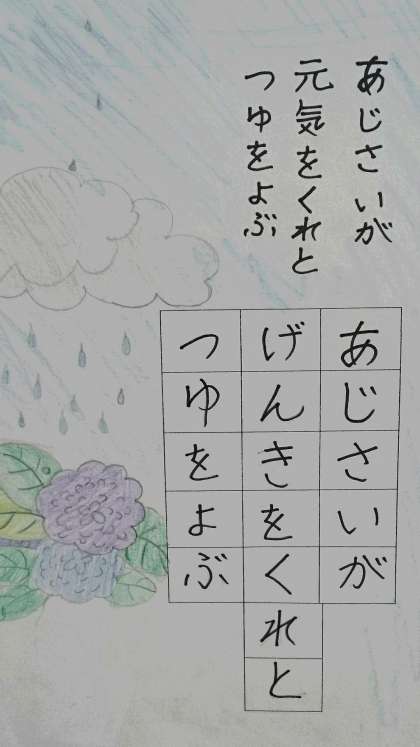 あじさいが
元気をくれと
つゆをよぶ
あじさいが
げんきをくれと
つゆをよぶ